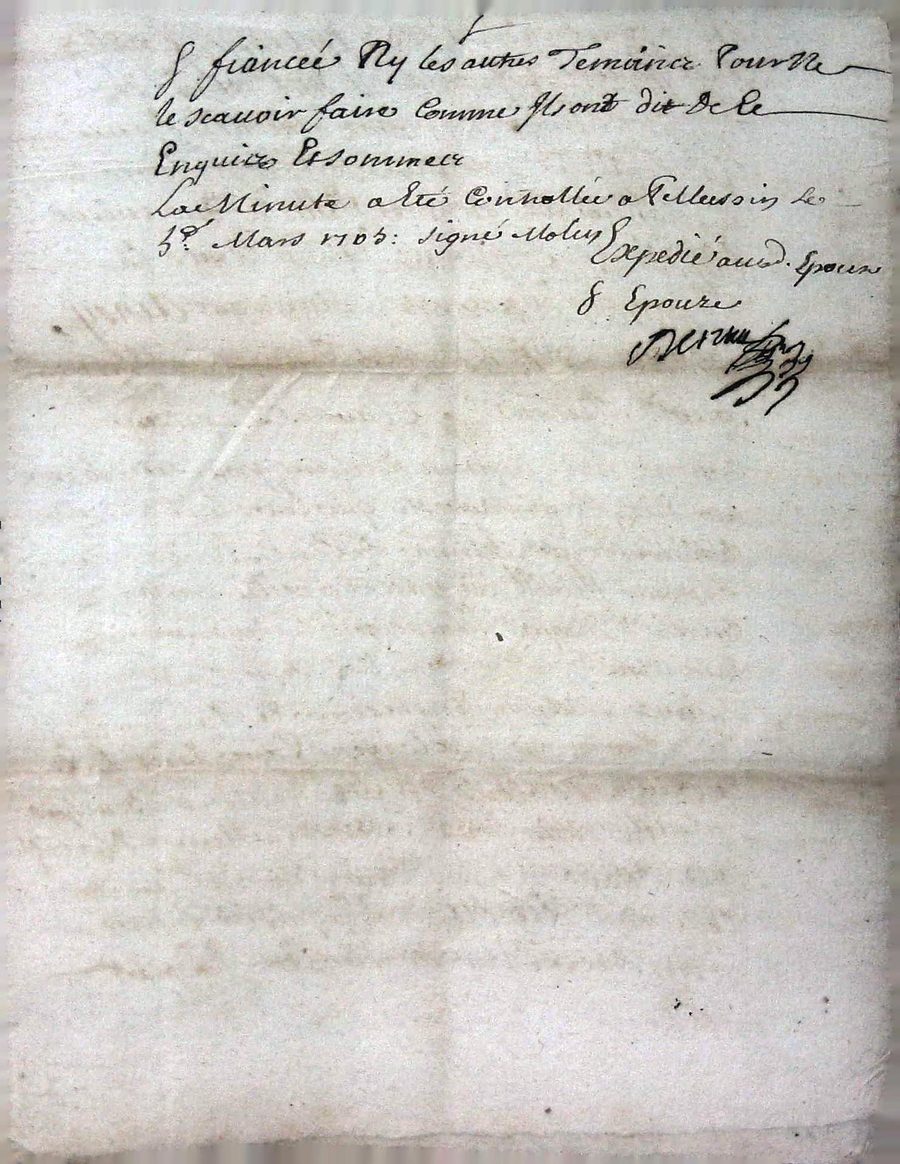 & fiancée Ny les autres Temoins Pour Ne
le scauoir faire Comme Ils ont dit De Ce
Enquis Et sommes
La Minute a Eté Controllée a Pellussin Le
5e. Mars 1705: signé
Expedié aud. Epoux
& Epouze